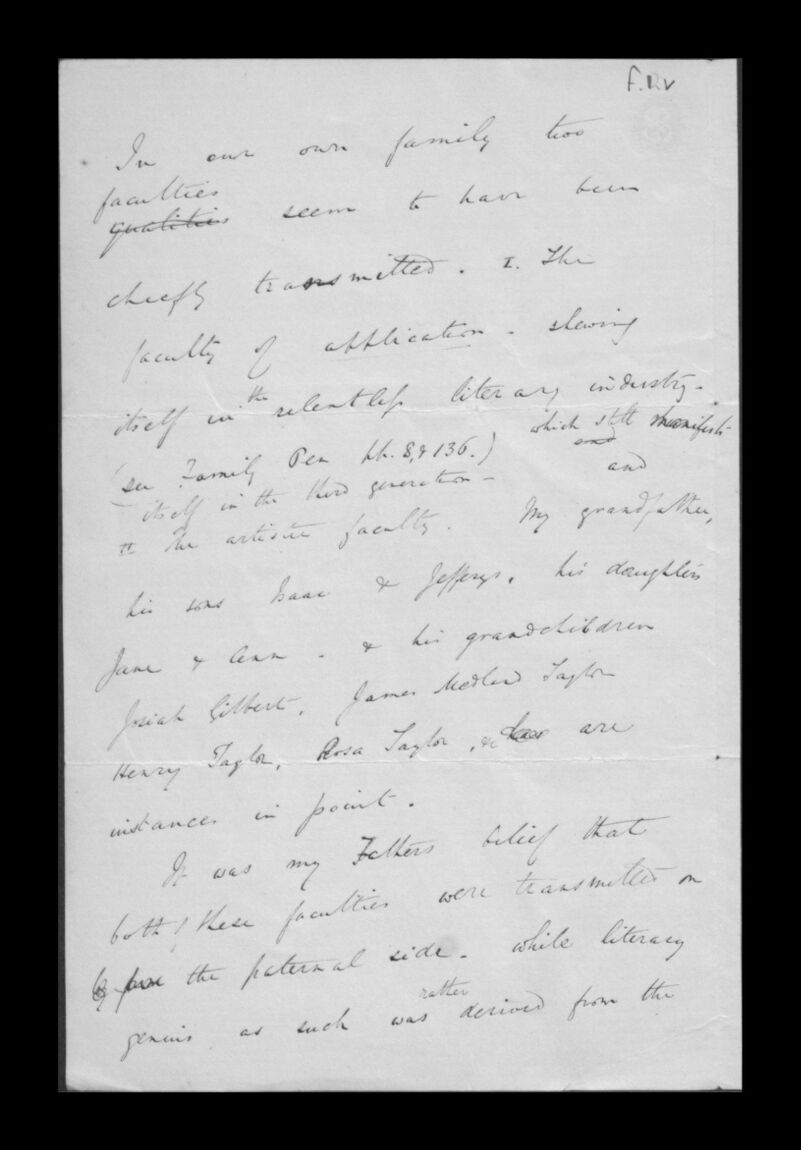 F.R.V
In our own family two
faculties
qualities seem to have been
chiefly transmitted. I. The
faculty of application - shewing
itself in the relentless literary industry -
(see Family Pen pp. 8, & 136.) which still manifests
itself in the third generation - and
II the artistic faculty. My grandfather,
his sons Isaac & Jefferys, his daughters
Jane & Ann - & his grandchildren
Josiah Gilbert, James Medland Taylor
Henry Taylor, Rosa Taylor, &c are
instances in point.
It was my Fathers belief that
both these faculties were transmitted on
by the paternal side - while literary
rather
genius as such was derived from the